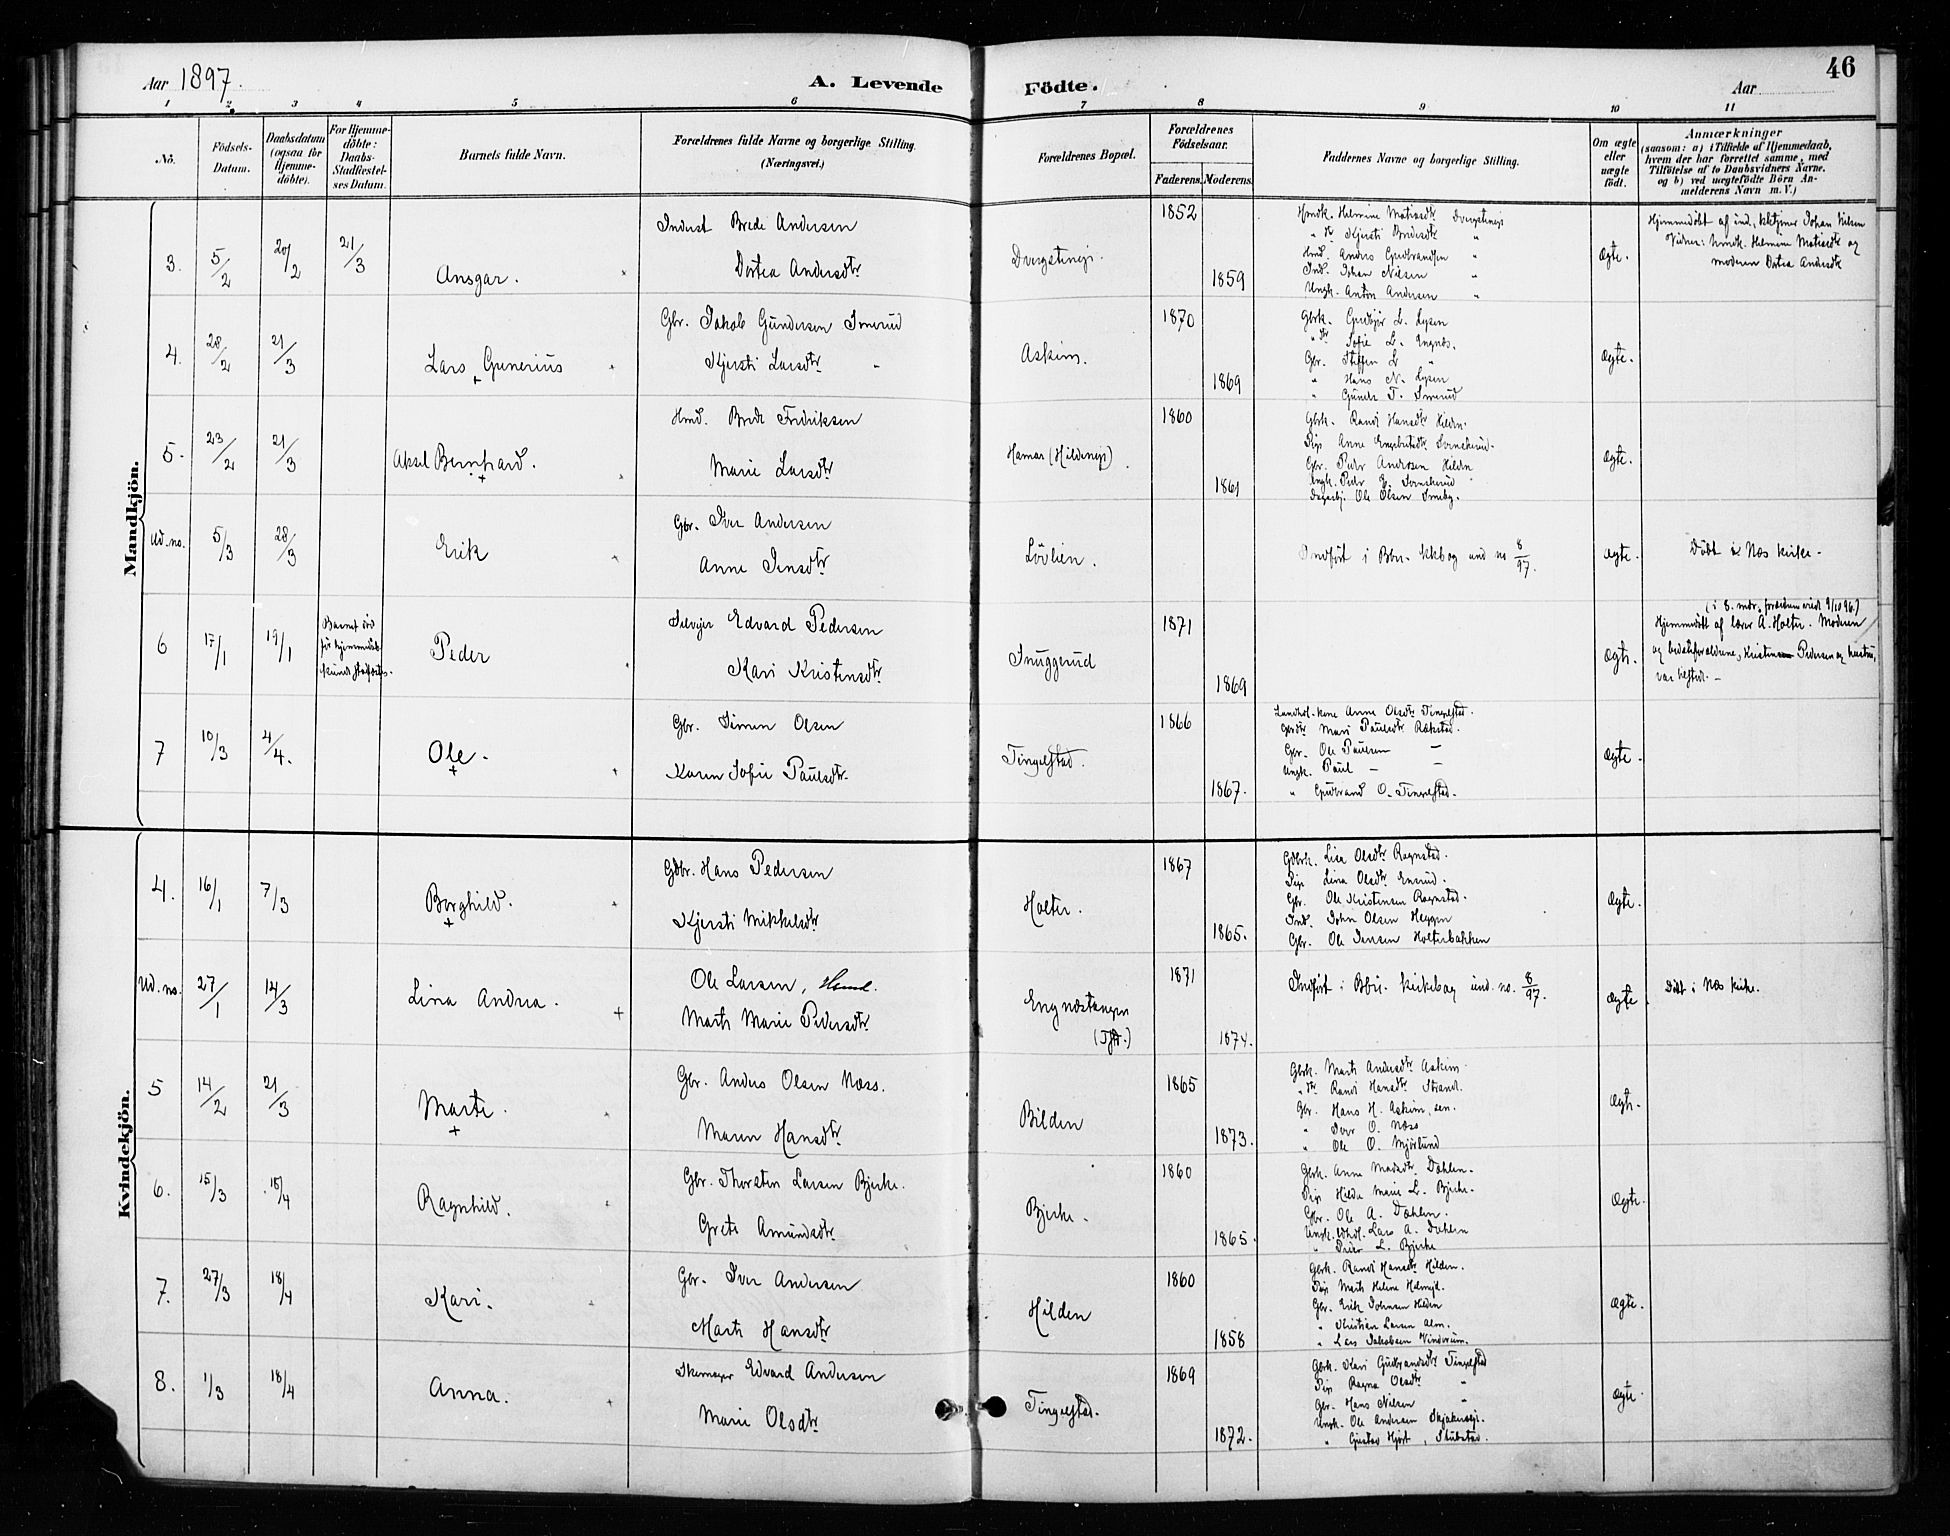 Aar 1897.
A. Levende Födte.
Aar
46
1 2. 3 4 5 6 7 8 9 10 11
No.
Födsels-Datum.
Daabsdatum (ogsaa for Hjemmedöbte).
For Hjemmedöbte: Daabs-Stadfæstelses Datum.
Barnets fulde Navn.
Forældrenes fulde Navne og borgerlige Stilling. (Næringsvei.)
Forældrenes Bopæl.
Forældrenes Födselsaar.
Faderens. Moderens.
Faddernes Navne og borgerlige Stilling.
Om ægte eller uægte födt.
Anmærkninger
(saasom: a) i Tilfælde af Hjemmedaab, hvem der har forrettet samme, med Tilföielse af to Daabsvidners Navne. og b) ved uægtefödte Börn Anmelderens Navn m. V.)
Mandkjön.
3. 5/2 20/2 21/3 Ansgar.
Inderst Brede Andersen
Dortea Andersdtr
Dvergsteneje.
1852
1859
Hmdk. Helmine Matiasdtr Dvergsteneje
" dtr Kjersti Bredesdtr "
Hmd. Anders Gudbrandsen "
Ind. Johan Nilsen "
Ungk. Anton Andersen "
Ægte.
Hjemmedöbt af ind. Johan Nilsen
Vidner: hmdk. Helmine Matiasdtr og
moderen Dortea Andersdtr
4. 28/2 21/3 Lars Gunerius
Gbr. Jakob Gundersen Smerud
Kjersti Larsdtr "
Askim.
1870
1869
Gbrk. Gudbjör L. Lysen
" dtr Sofie L. Engnæs.
Gbr. Steffen L "
" Hans N. Lysen
" Gunder T. Smerud
Ægte.
5. 23/2 21/3 Aksel Bernhard.
Hmd. Brede Fredriksen
Marie Larsdtr
Hamar (Hildeneje).
1860
1861
Gbrk. Randi Hansdtr Hilden.
Pige Anne Engebretsdtr Svenskerud.
Gbr. Peder Andersen Hilden
Ungk. Peder E. Svenskerud
Dagarbj. Ole Olsen Smeby.
Ægte.
Ud. no. 5/3 28/3 Erik
Gbr. Iver Andersen
Anne Jensdtr
Lövlien.
Indfört i Bbu. kkbog und no 8/97.
Ægte.
Döbt i Næs kirke.
6 17/1 19/1
Barnet död
för hjemmedaab
kunde stadfæstes.
Peder
Selveier Edvard Pedersen
Kari Kristensdtr
Snuggerud
1871
1869
Ægte.
Hjemmedöbt af lærer A. Holter. Moderen
og bedsteforældrene, Kristen Pedersen og hustru,
var tilstede. –
7 10/3 4/4. Ole.
Gbr. Simen Olsen
Karen Sofie Paulsdtr.
Tingelstad.
1866
1867.
Landhdl.-kone Anne Olsdtr Tingelstad.
Gbrdtr Mari Paulsdtr Rækstad.
Gbr. Ole Paulsen –
Ungk. Paul – –
" Gudbrand O. Tingelstad.
Ægte.
Kvindekjön.
4. 16/1 7/3 Borghild.
Gbbr. Hans Pedersen
Kjersti Mikkelsdtr
Holter.
1867
1865.
Gdbrk. Lisa Olsdtr Rognstad.
Pige Lina Olsdtr Enerud.
Gbr. Ole Kristensen Rognstad.
Ind. John Olsen Heggen
Gbr. Ole Jensen Holterbakken
Ægte.
Ud. no. 27/1 14/3 Lina Andrea.
Ole Larsen, Hmd.
Marte Marie Pedersdtr
Engnæstangen
1871
1874.
Indfört i Bbu. kirkebog und. no. 8/97.
Ægte
Döbt i Næs kirke.
5 14/2 21/3 Marte.
Gbr. Anders Olsen Næss.
Maren Hansdtr
Bilden
1865
1873.
Gbrk. Marte Andersdtr Askim
" dtr Randi Hansdtr Strand.
Gbr. Hans H. Askim, sen.
" Iver O. Næss
" Ole O. Mjörlund
Ægte.
6. 15/3 18/4 Ragnhild.
Gbr. Thorsten Larsen Bjerke.
Grete Amundsdtr
Bjerke.
1860
1865.
Gbrk. Anne Madsdtr Dæhlen.
Pige Hilda Marie L. Bjerke.
Gbr. Ole A. Dæhlen.
Ungk. Lars A. Dæhlen
" Peder L. Bjerke
Ægte.
7. 27/3 18/4 Kari.
Gbr. Iver Andersen
Marte Hansdtr
Hilden
1860
1858
Gbrk. Randi Hansdtr Hilden.
Pige Marte Helene
Gbr. Erik Johnsen Hilden
" Kristian Larsen Alm.
" Lars Jakobsen Vindorum.
Ægte.
8. 1/3 18/4 Anna.
Skomager Edvard Andersen
Marie Olsdtr
Tingelstad.
1869
1872.
Gbrk. Kari Gudbrandsdtr Tingelstad
Pige Ragna Olsdtr "
Gbr. Hans Nilsen "
Ungk. Ole Andersen
" Gustav Hjort,
Ægte